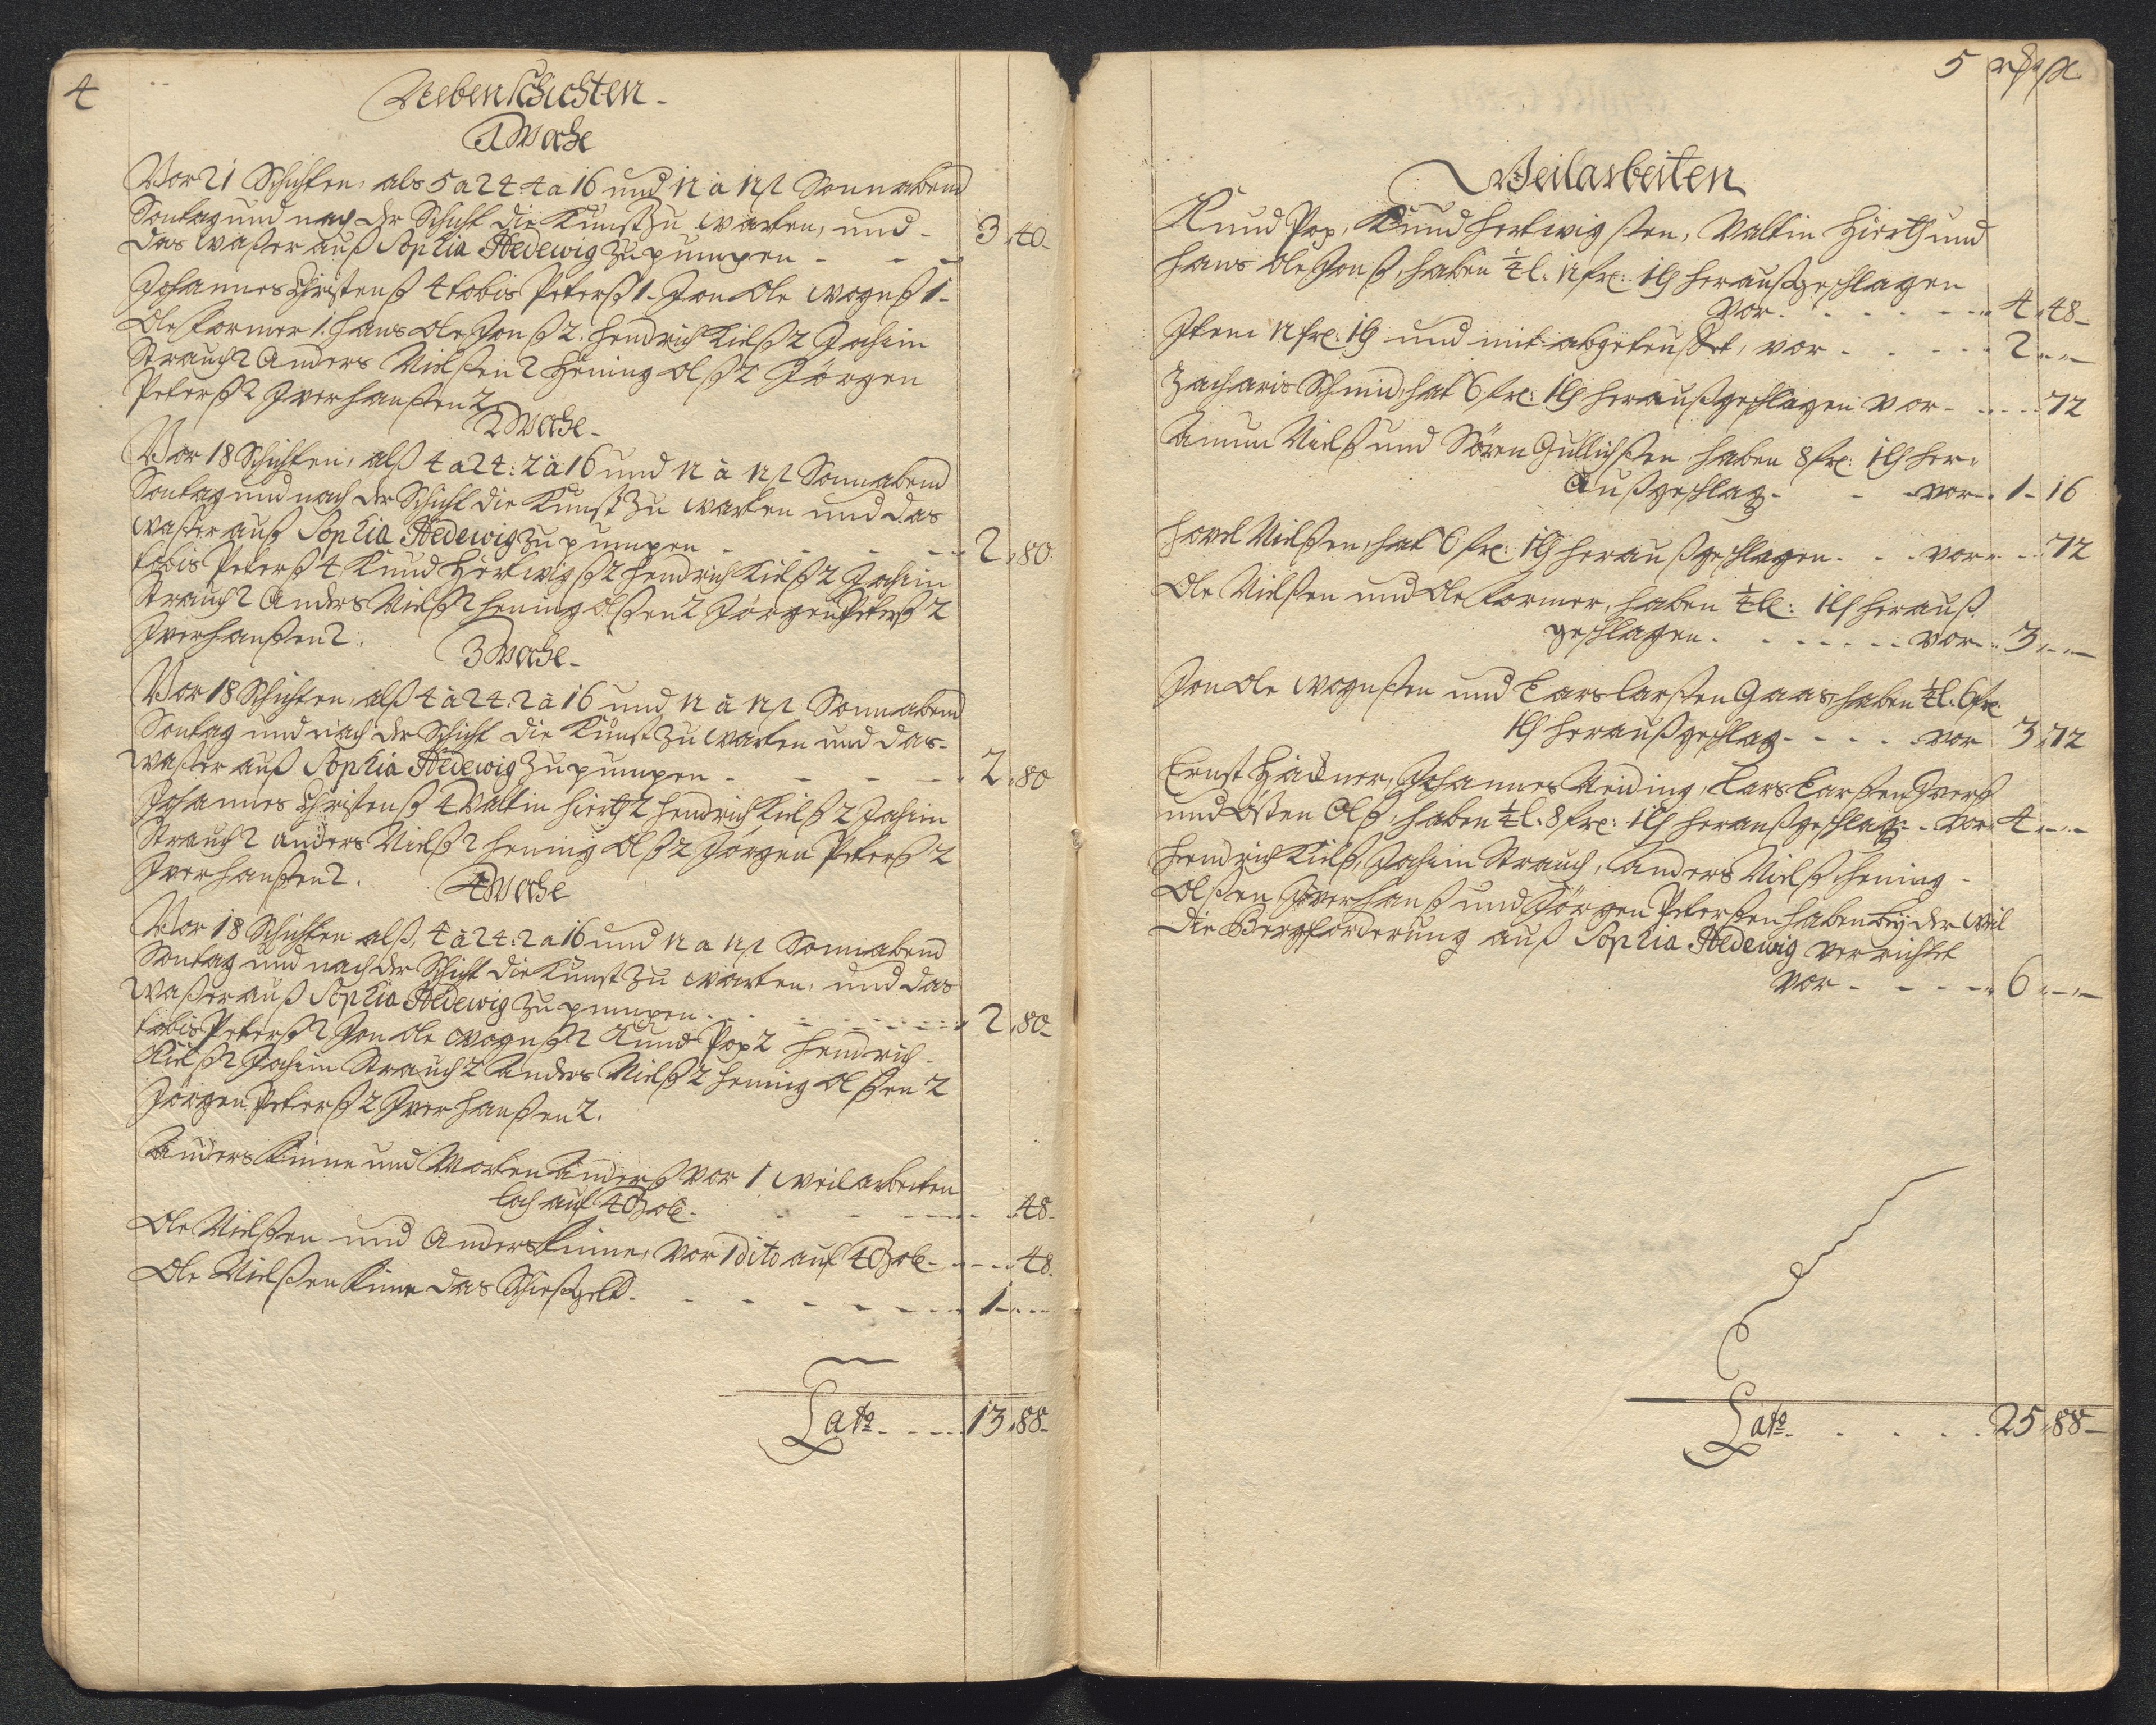 4
Nebenschichten.
1 Woche
Vor 21 Schichten, als 5 a 24. 4 a 16 und 12 à 12 ß Sonnabend
Sontag und nach der Schicht die Kunst zu warten, und -
das Waßer auß Sophia Hedewig zu pumpen - - - 3. 40.
Johannes Christenß 4 tobis Peterß 1. Jon Ole Wognß 1.
Ole Cormer 1. hans Ole Jonß 2. hendrich Kielß 2 Jochim
Strauch 2 Anders Nielßen 2 hening Olß 2 Jörgen
Peterß 2 Jver hanßen 2
2 Woche.
Vor 18 Schichten, alß 4 a 24: 2 à 16 und 12 à 12 ß Sonnabend
Sontag und nach der Schicht die Kunst zu warten und das
waßer auß Sophia Hedewig zu pumpen - - - 2. 80.
tobis Peterß 4 Knud Hertwigß 2 hendrich Kielß 2 Jochim
Strauch 2 Anders Nielß 2 hening Olßen 2 Jörgen Peterß 2
Jver hanßen 2.
3 Woche.
Vor 18 Schichten, alß 4 à 24. 2 à 16 und 12 à 12 ß Sonnabend
Sontag und nach der Schicht die Kunst zu warten und das
waßer auß Sophia Hedewig zu pumpen - - - 2. 80
Johannes Christenß 4 Valtin hierth 2 hendrich Kielß 2 Jochim
Strauch 2 anders Nielß 2 hening Olß 2 Jörgen Peterß 2
Jver hanßen 2.
4 Woche
Vor 18 Schichten alß, 4 à 24: 2 a 16 und 12 a 12 ß Sonnabend
Sontag und nach der Schicht die Kunst zu warten, und das
Waßer auß Sophia Hedewig zu pumpen - - - 2. 80.
tobis Peterß 2 Jon Ole Wognß 2 Knud Pop 2 hendrich
Kielß 2 Jochim Strauch 2 Anders Nielß 2 hening Olßen 2
Jörgen Peterß 2 Jver hanßen 2.
Anders Kinne und Morten Anderß vor 1 weilarbeiten
Loch auf 40 Zole - - - 48.
Ole Nielßen und Anders Kinne, vor 1 dito auf 40 Zole - - - 48.
Ole Nielßen Kinne das Schießgeld - - - 1 - -
Lato - - - 13. 88.
5
Weilarbeiten
Knud Pop, Knud hertwigßen, Valtin Hierth und
hans Ole Jonß, haben ¼ l. 12 fre: 1 lh heraußgeschlagen
vor - - - 4. 48.
Item 12 fre: 1 lh und mit abgeteuffet, vor - - - 2 - -
Zacharis Schmid, hat 6 fre: 1 lh heraußgeschlagen vor - - - 72
Amun Nielß und Sören Gullichßen haben 8 fre: 1 lh her-
Außgeschlag - - - vor - 1. 16
hovel Nielßen, hat 6 fre: 1 lh heraußgeschlagen - - - vor - - 72
Ole Nielßen und Ole Cormer, haben ¼ l: 1 lh herauß
geschlagen - - - vor - 3 - -
Jon Ole Wognßen und Lars Larßen Gaas, haben ¼ l. 6 fre
1 lh heraußgeschlag - - - vor 3. 72
Ernst Häcner, Johannes Neiding, Lars Larßen Jverß
und Östen Olß, haben ¼ l. 8 fre: 1 lh heraußgeschlag - - vor 4 - -
hendrich Kielß, Jochim Strauch, Anders Nielß hening
Olßen Jver hanß und Jörgen Peterßen haben bey der weil
die Bergforderung auß Sophia Hedewig verrichtet
vor - - - 6 - -
Lato - - - 25. 88.